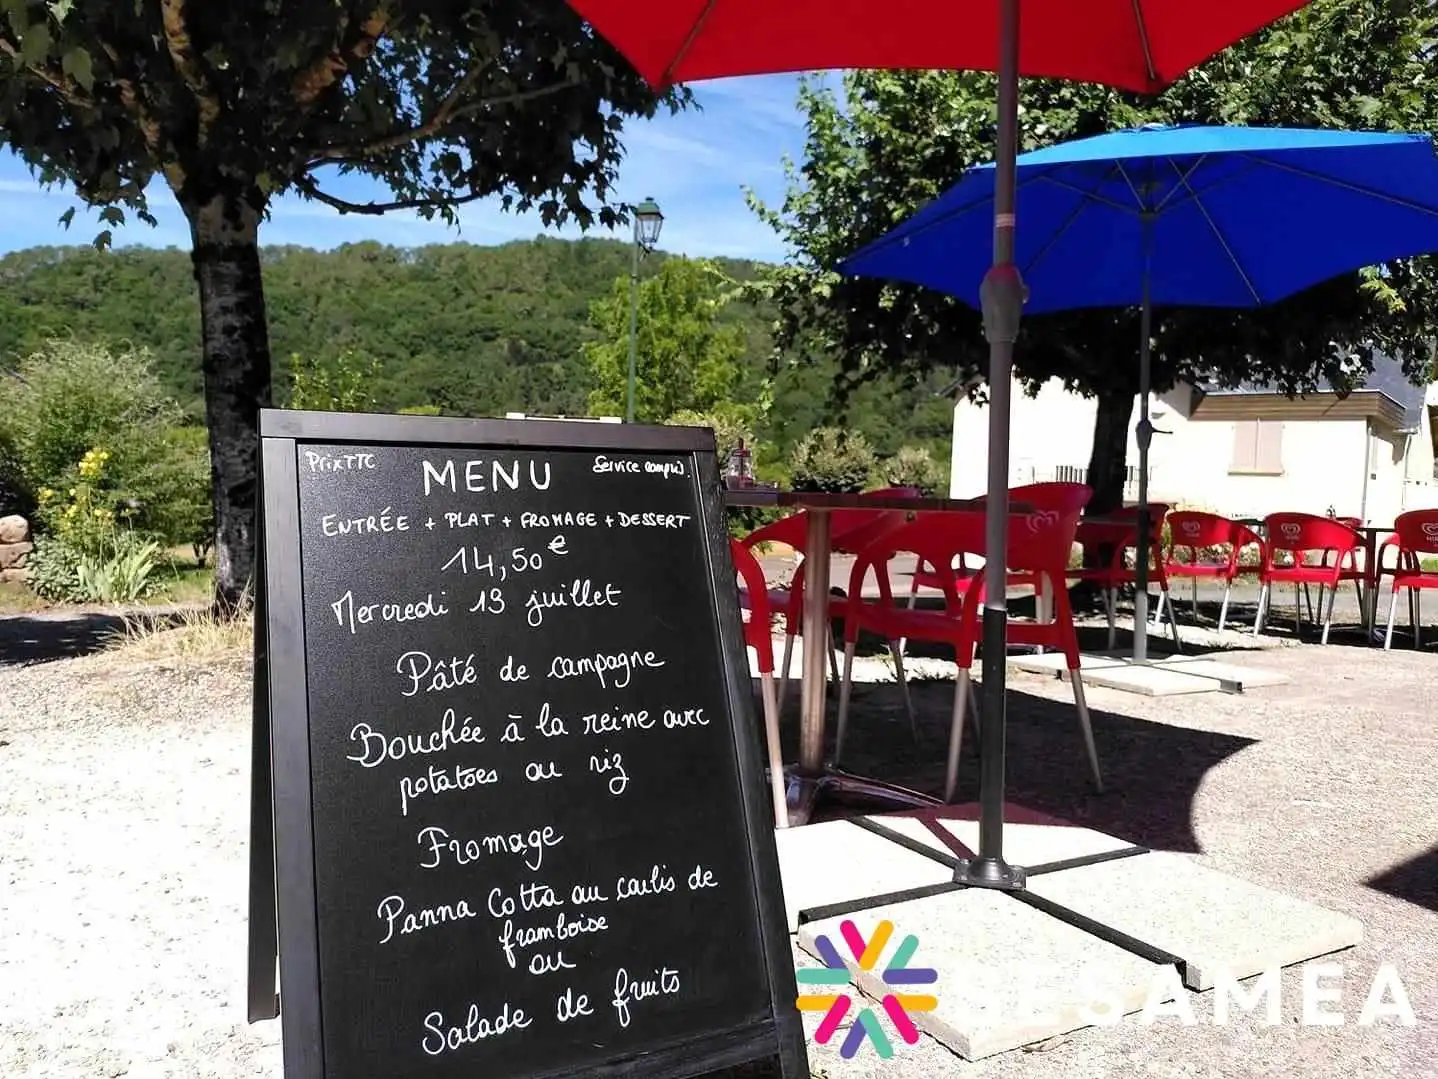 Prix TTC
MENU
Service compris.
ENTRÉE + PLAT + FROMAGE + DESSERT
14,50€
Mercredi 13 juillet
Pâté de campagne
Bouchée à la reine avec
potatoes ou riz
Fromage
Panna Cotta au coulis de
framboise
ou
Salade de fruits
SESAMEA